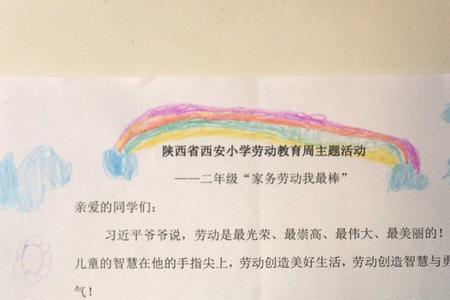 陕西省西安小学劳动教育周主题活动
——二年级“家务劳动我最棒”
亲爱的同学们：
习近平爷爷说，劳动是最光荣、最崇高、最伟大、最美丽的！
儿童的智慧在他的手指尖上，劳动创造美好生活，劳动创造智慧与勇
气！